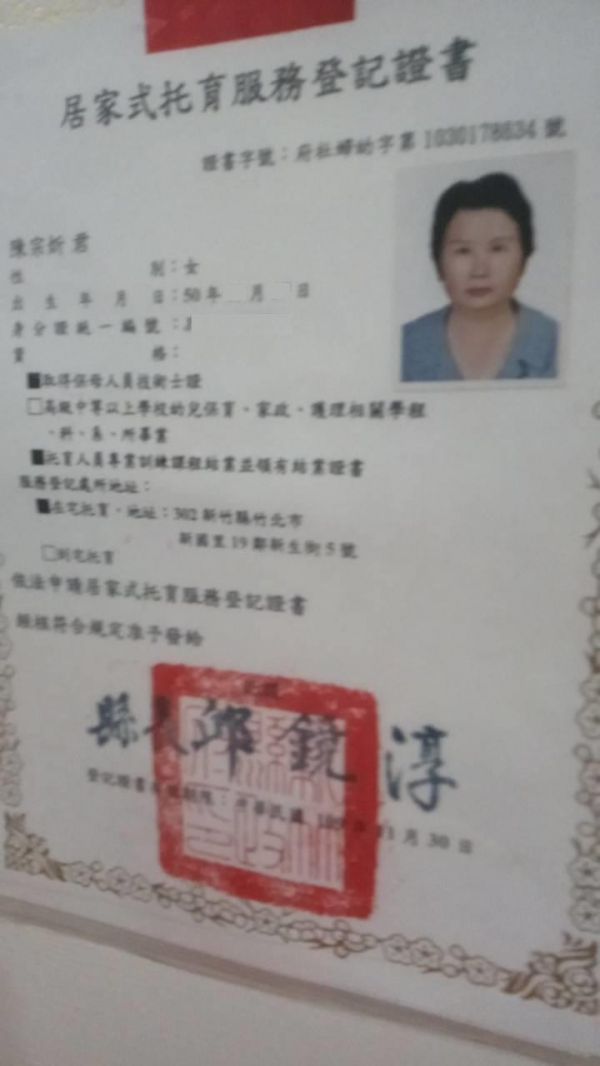 居家式托育服務登記證書
證書字號：府社婦幼字第1030178634號
陳宗妡 君
性 別：女
出生年月日：50年 月 日
身分證統一編號：J
資 格：
■取得保母人員技術士證
□高級中等以上學校幼兒保育、家政、護理相關學程
、科、系、所畢業
■托育人員專業訓練課程結業並領有結業證書
服務登記處所地址：
■在宅托育，地址：302新竹縣竹北市
新國里19鄰新生街5號
□到宅托育
依法申請居家式托育服務登記證書
經核符合規定准予發給
縣長邱鏡淳
登記證書有效期限：中華民國 年11月30日